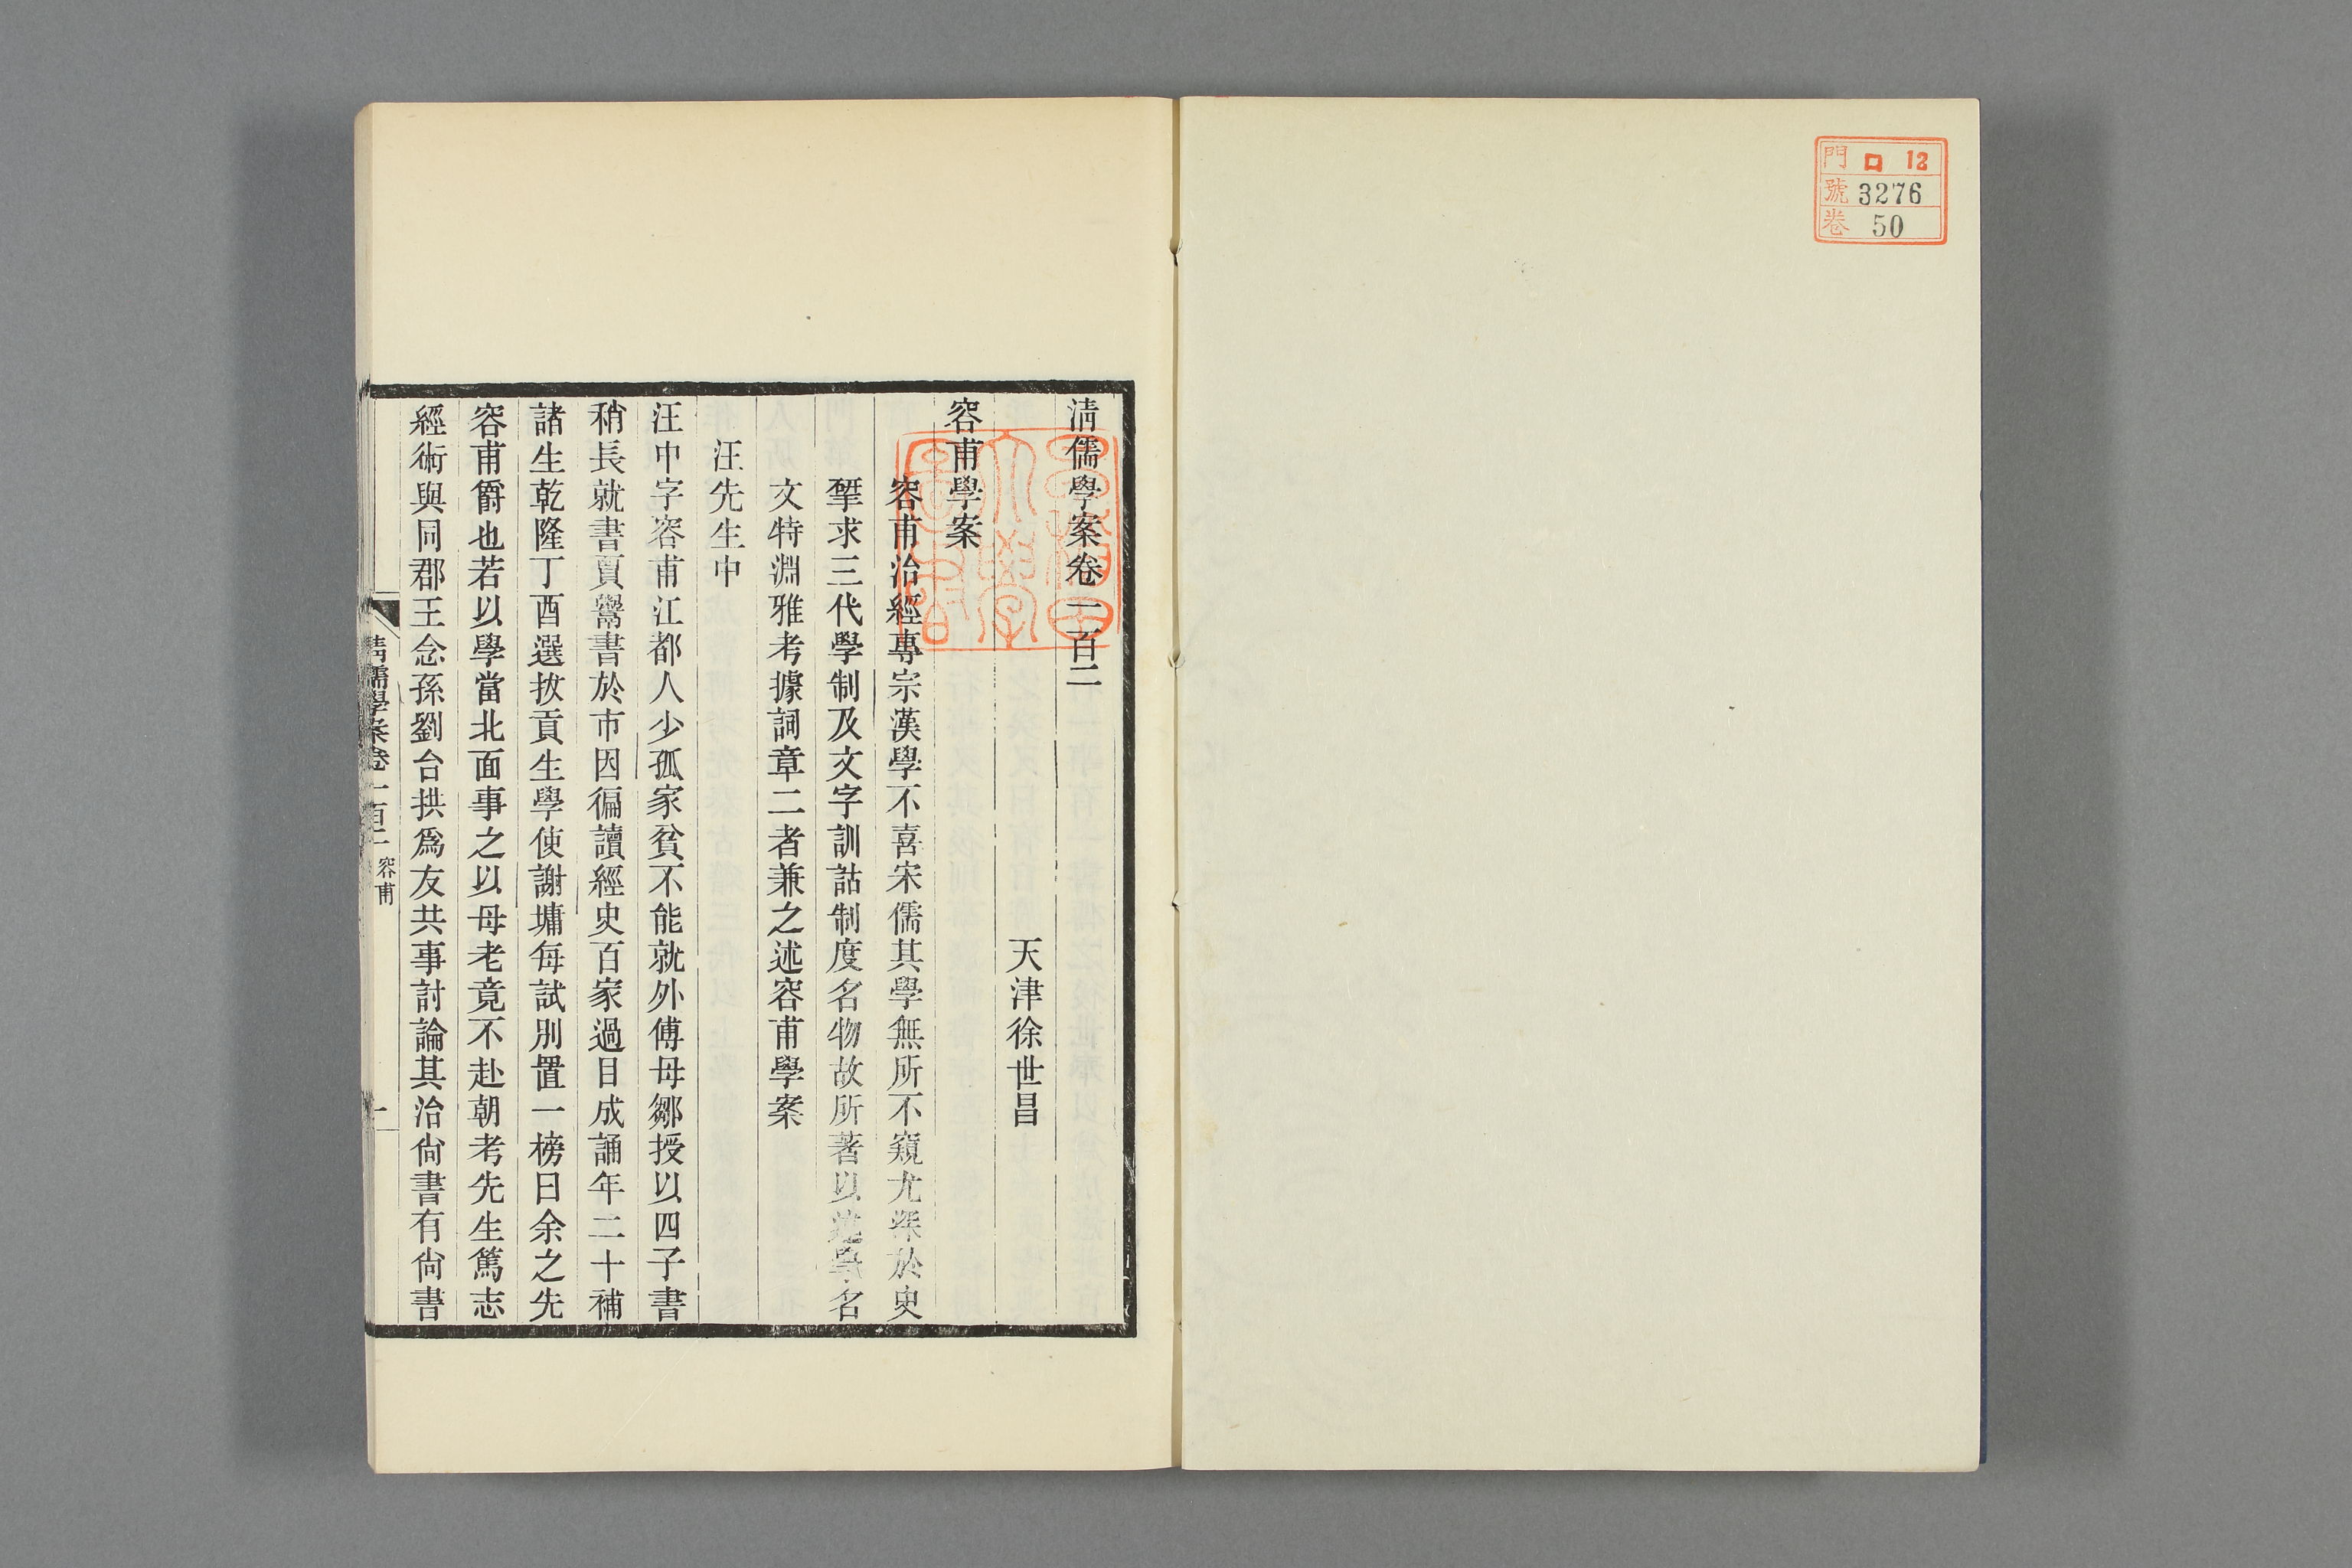 門 ロ 12
號 3276
卷 50
清儒學案卷一百二
天津徐世昌
容甫學案
容甫治經專宗漢學不喜宋儒其學無所不窺尤深於史
揅求三代學制及文字訓詁制度名物故所著以述學名
文特淵雅考據詞章二者兼之述容甫學案
汪先生中
汪中字容甫江都人少孤家貧不能就外傅母鄒授以四子書
稍長就書賈鬻書於市因徧讀經史百家過目成誦年二十補
諸生乾隆丁酉選拔貢生學使謝墉每試別置一榜曰余之先
容甫爵也若以學當北面事之以母老竟不赴朝考先生篤志
經術與同郡王念孫劉台拱爲友共事討論其治尙書有尙書
清儒學案卷一百二 容甫
一